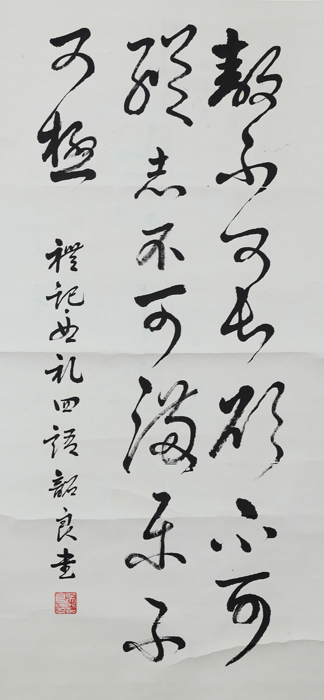 敖不可長欲不可
縱志不可滿樂不
可極
禮記曲礼四語韶良書